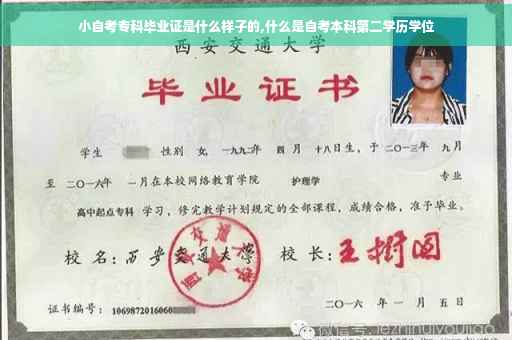 小自考专科毕业证是什么样子的,什么是自考本科第二学历学位
西安交通大学
毕业证书
学生 性别 女,一九九二年 四月 十八日生,于二〇一三年 九月
至 二〇一六年 一月在本校网络教育学院 护理学 专业
高中起点专科 学习,修完教学计划规定的全部课程,成绩合格,准予毕业。
校 名:西安交通大学 校 长:王树国
西安交通大学
证书编号:1069872016060
二〇一六 年 一 月 五 日
微信号:jezhihuiyoujiao